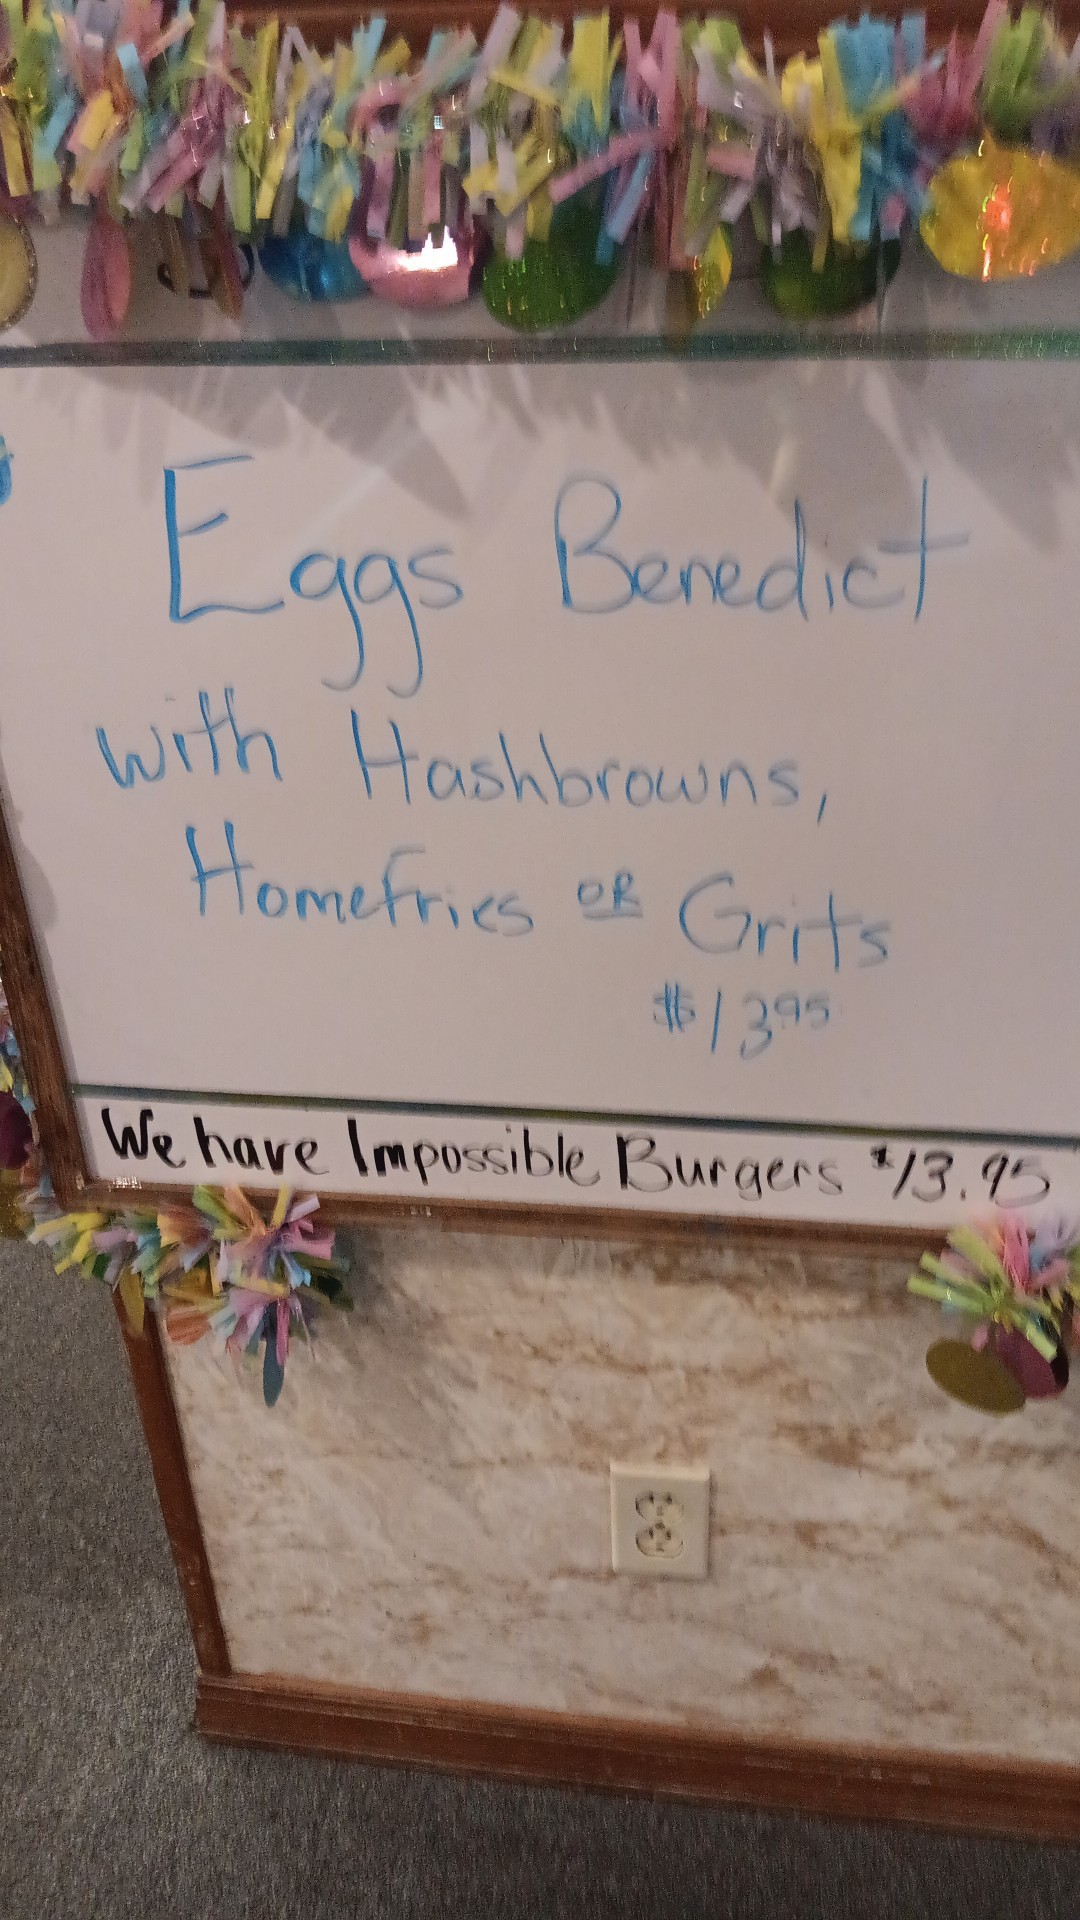 Eggs Benedict
with Hashbrowns,
Homefries OR Grits
$13.95
We have Impossible Burgers $13.95